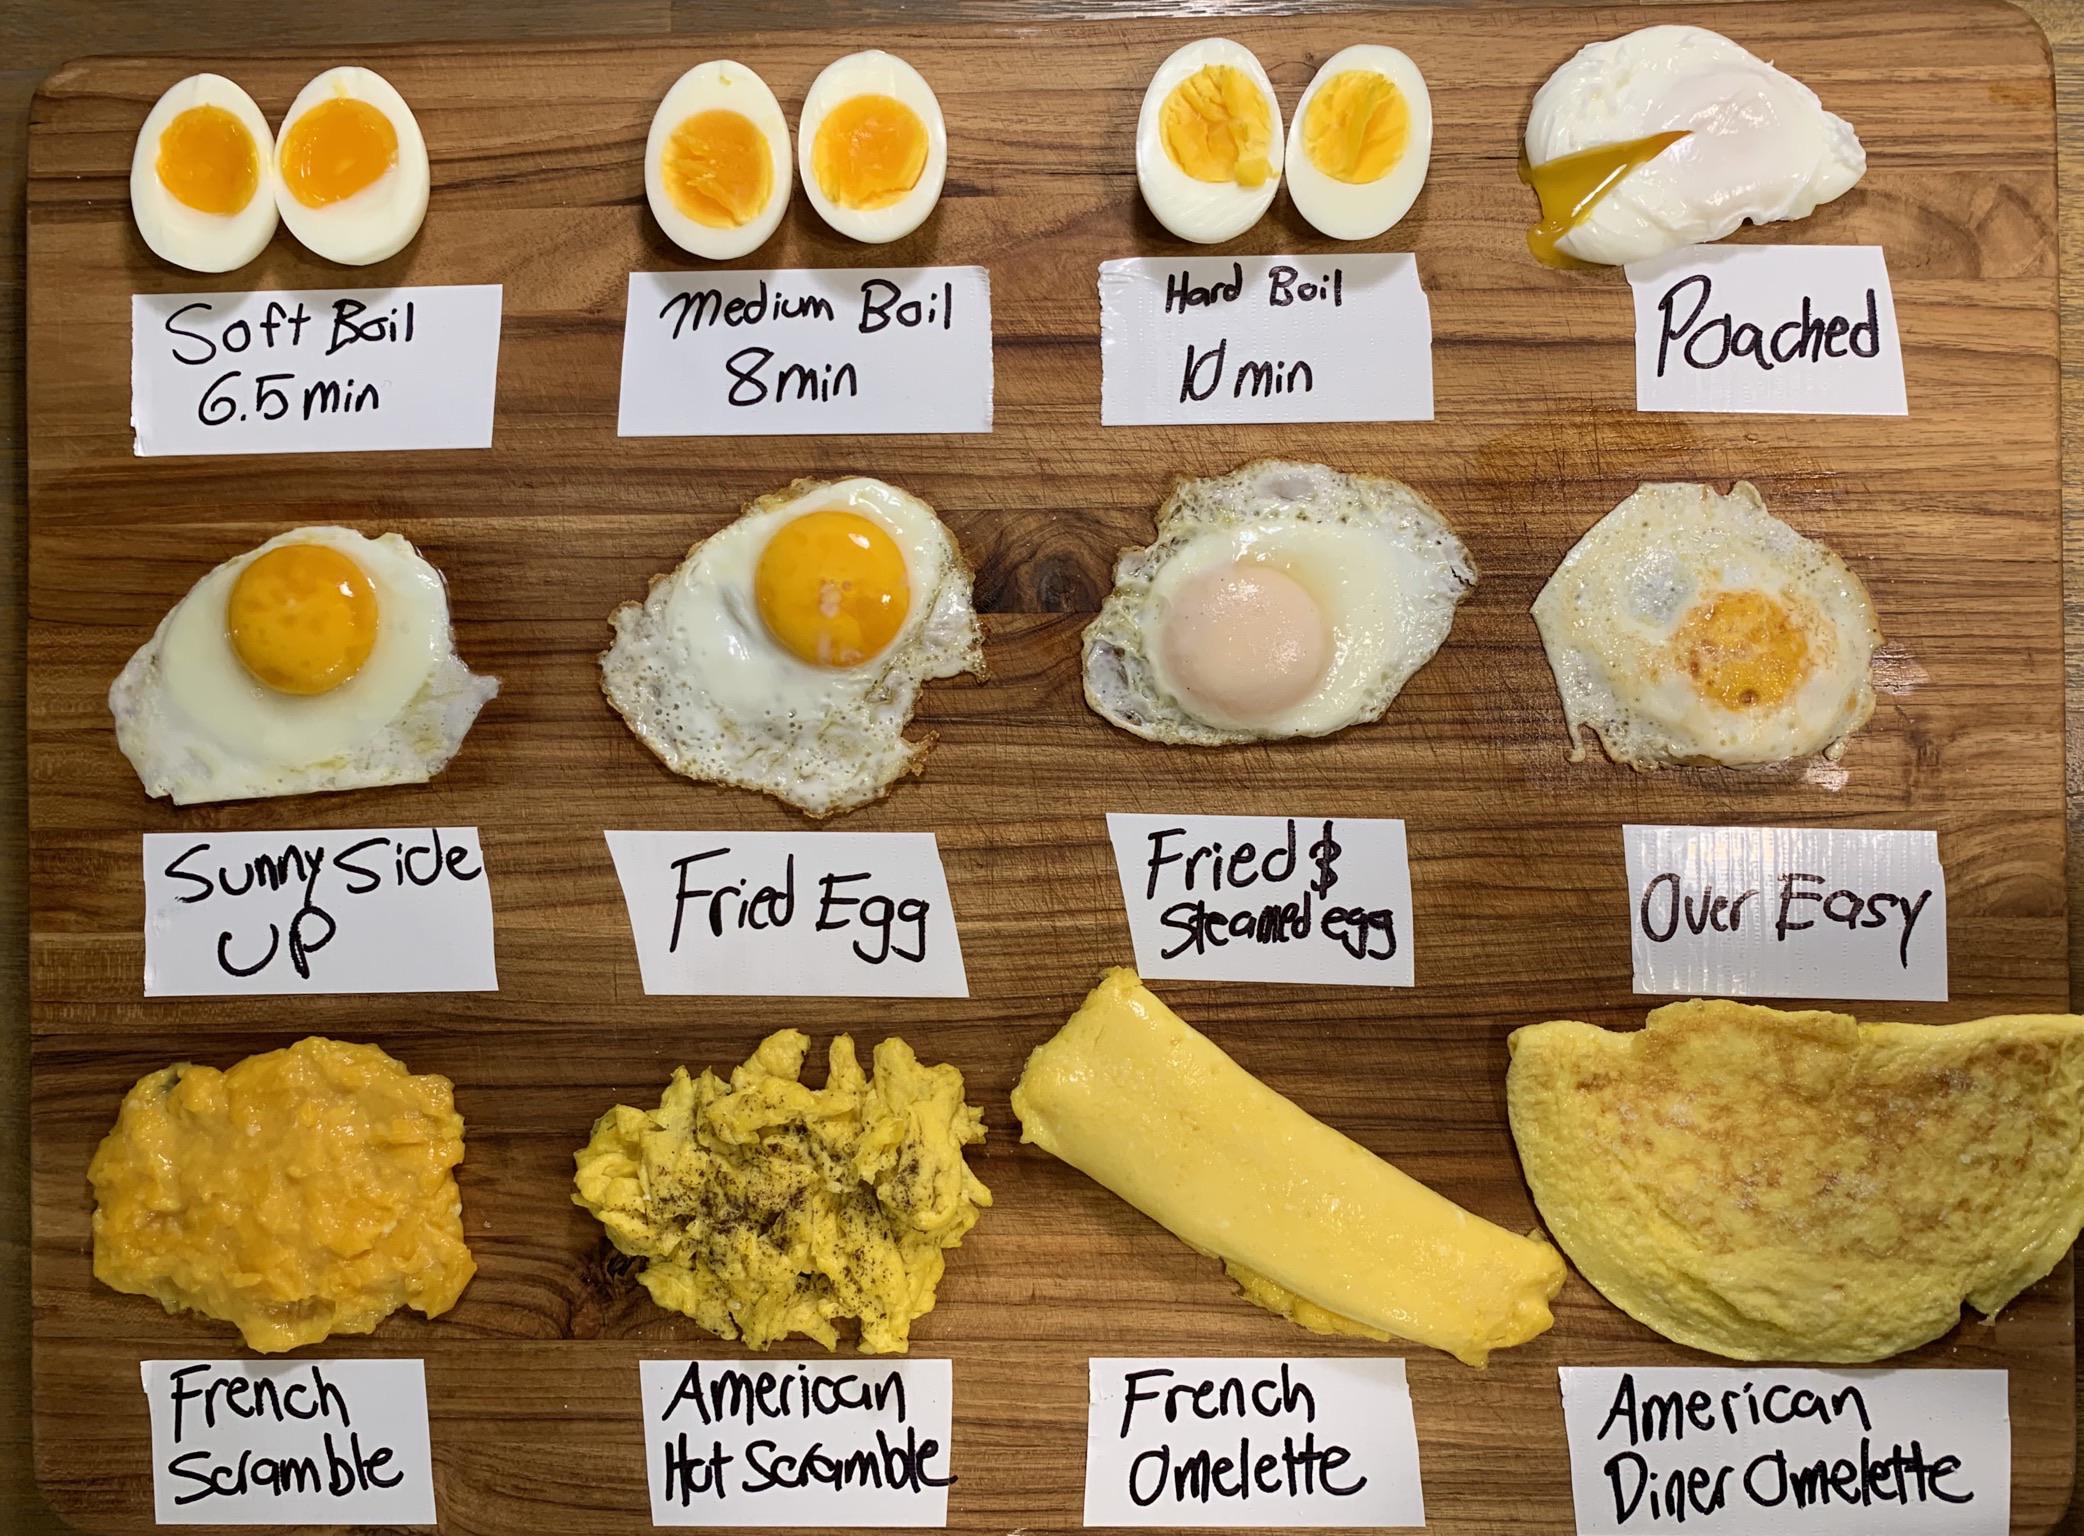 Soft Boil
6.5 min
Medium Boil
8 min
Hard Boil
10 min
Poached
Sunny Side
UP
Fried Egg
Fried &
Steamed egg
Over Easy
French
Scramble
American
Hot Scramble
French
Omelette
American
Diner Omelette